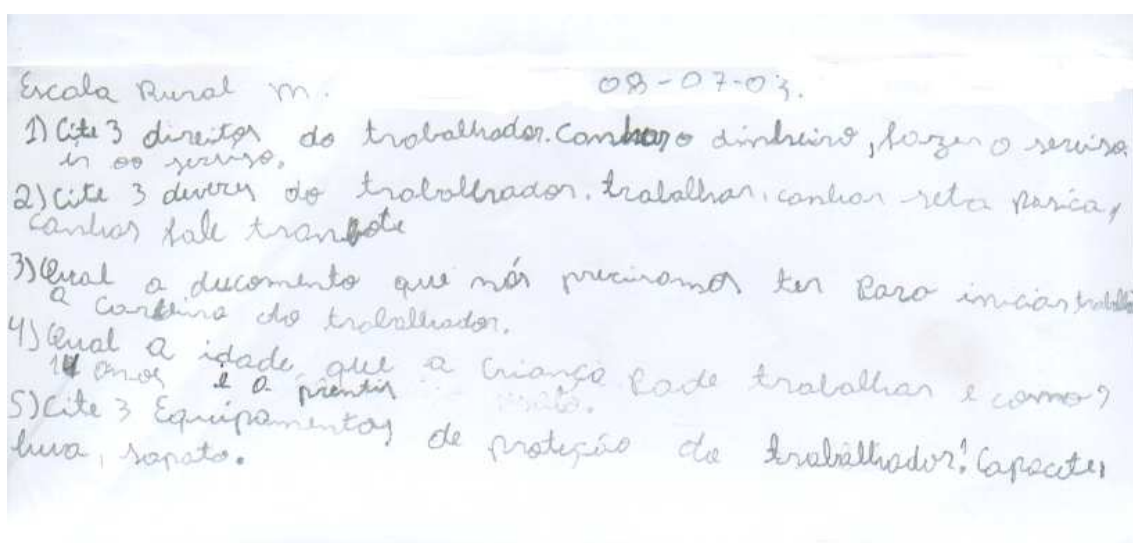 Escola Rural M. 08-07-03.
1) Cite 3 direitos do trabalhador. Canhar o dinheiro, fazer o serviso.
ir ao serviso.
2) Cite 3 deveres do trabalhador. trabalhar, canhar seta pasica,
canhar fale tranpote
3) Qual a ducomento que nós precisamos ter para iniciar trabalho
a carteira do trabalhador.
4) Qual a idade que a criança pode trabalhar e como?
14 anos e a prentis
5) Cite 3 Equipamentos de proteção do trabalhador? Capacete,
luva, sapato.